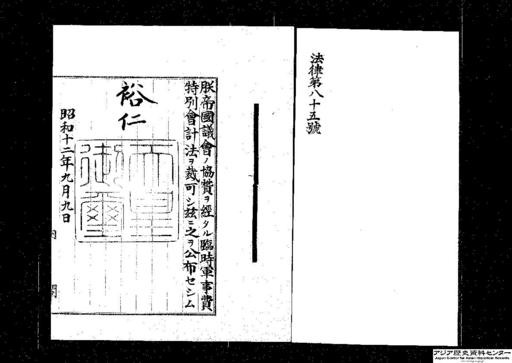 法律第八十五號
朕帝國議會ノ協賛ヲ經タル臨時軍事費
特別會計法ヲ裁可シ玆ニ之ヲ公布セシム
裕仁
天皇御璽
昭和十二年九月九日
内 閣
アジア歴史資料センター
Japan Center for Asian Historical Records